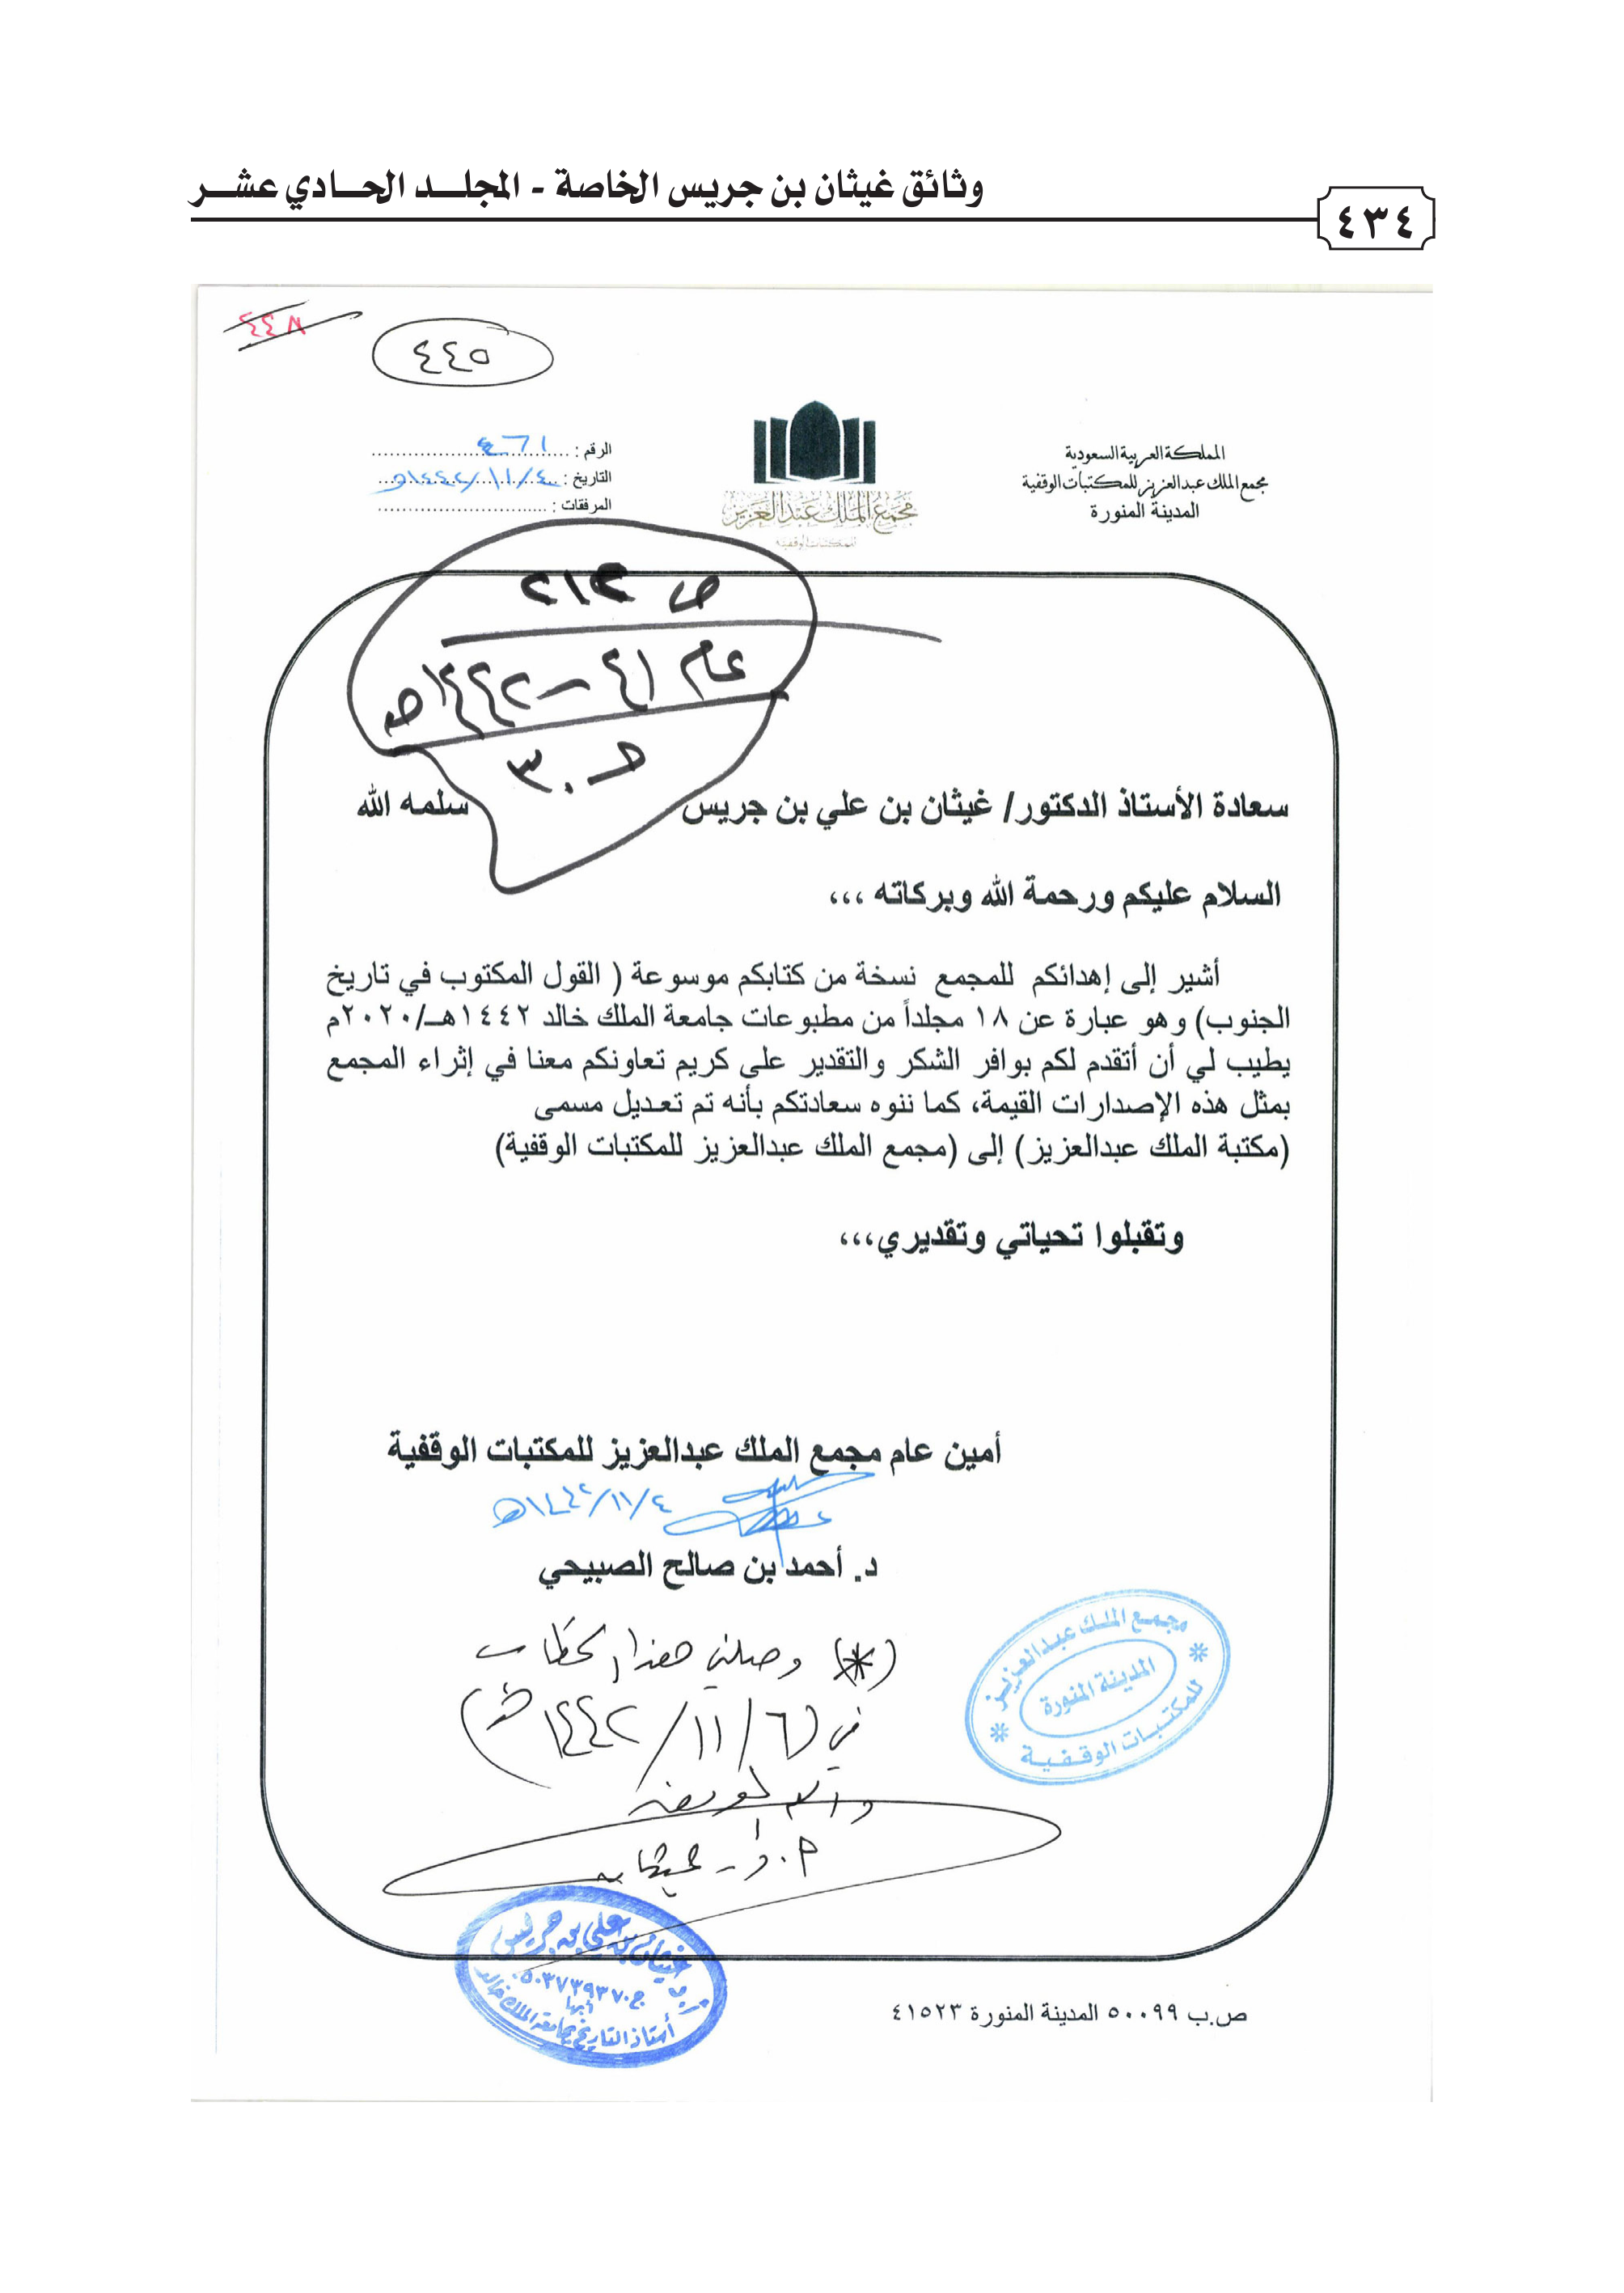 وثائق غيثان بن جريس الخاصة - المجلـــد الحـــادي عشـــر
٤٣٤
٤٤٨
٤٤٥
المملكة العربية السعودية
مجمع الملك عبدالعزيز للمكتبات الوقفية
المدينة المنورة
مجمع الملك عبدالعزيز
للمكتبات الوقفية
الرقم : ٤٦١
التاريخ : ١٤٤٢/١١/٤هـ
المرفقات :
ص ٢١٢
عام ٤١ – ١٤٤٢هـ
سعادة الأستاذ الدكتور/ غيثان بن علي بن جريس سلمه الله
السلام عليكم ورحمة الله وبركاته ،،،
أشير إلى إهدائكم للمجمع نسخة من كتابكم موسوعة ( القول المكتوب في تاريخ
الجنوب) وهو عبارة عن ١٨ مجلداً من مطبوعات جامعة الملك خالد ١٤٤٢هـ/٢٠٢٠م
يطيب لي أن أتقدم لكم بوافر الشكر والتقدير على كريم تعاونكم معنا في إثراء المجمع
بمثل هذه الإصدارات القيمة، كما ننوه سعادتكم بأنه تم تعديل مسمى
(مكتبة الملك عبدالعزيز) إلى (مجمع الملك عبدالعزيز للمكتبات الوقفية)
وتقبلوا تحياتي وتقديري،،،
أمين عام مجمع الملك عبدالعزيز للمكتبات الوقفية
١٤٤٢/١١/٤هـ
د. أحمد بن صالح الصبيحي
(*) وصلني هذا الخطاب
في (٦/١١/١٤٤٢هـ)
والله الموفق
أ.د. غيثان
مجمع الملك عبدالعزيز
المدينة المنورة
للمكتبات الوقفية
أ.د. غيثان بن علي بن جريس
ج.٠٥٠٣٧٣٩٣٧٠
أبها
أستاذ التاريخ بجامعة الملك خالد
ص.ب ٥٠٠٩٩ المدينة المنورة ٤١٥٢٣